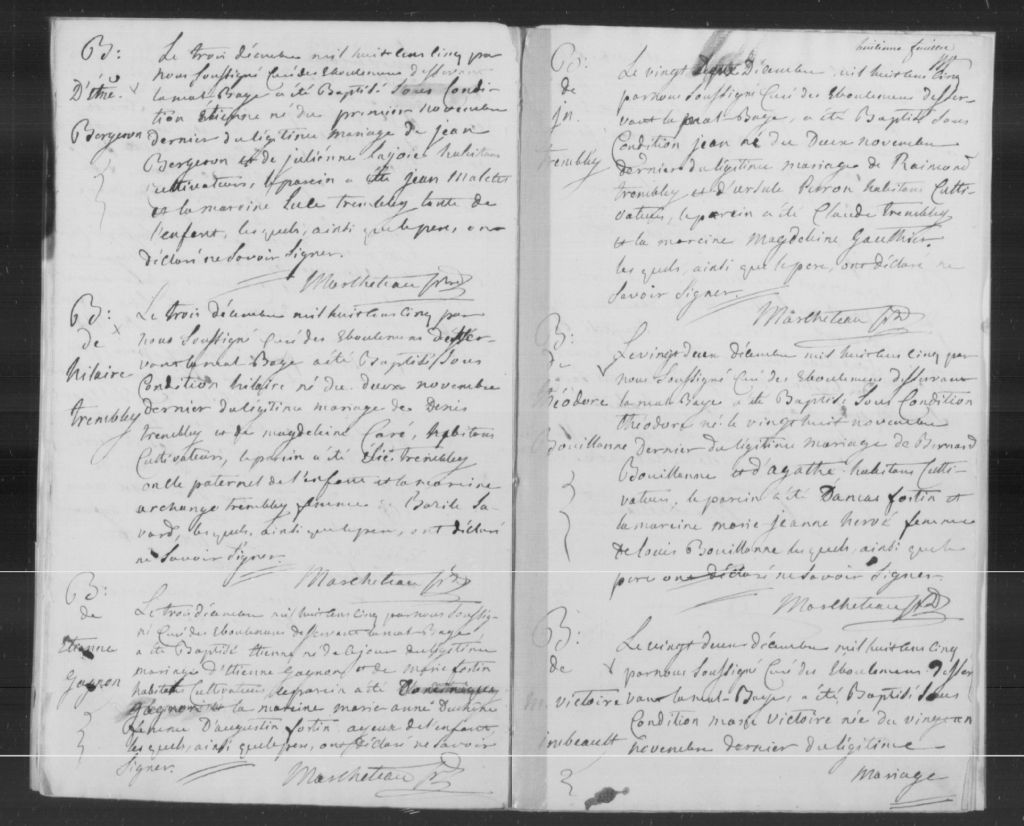 B:
D'étne.
Bergeron
Le trois décembre mil huit cens cinq par
nous Soussigné Curé des Eboulemens desservant
la mal-Baye a été Baptisé sous Condi-
tion étienne né du premier novembre
dernier du légitime mariage de jean
Bergeron et de julienne lajoie habitans
Cultivateurs, le parein a été jean Maltet
et la mareine Luce trembley tante de
l'enfent, les quels, ainsi que le pere, ont
déclaré ne Savoir Signer.
Marcheteau ptre
B:
de
hilaire
trembley
Le trois décembre mil huit cens cinq par
nous Soussigné Curé des Eboulemens desser-
vant la mal-Baye a été Baptisé Sous
Condition hilaire né du deux novembre
dernier du légitime mariage de Denis
trembley et de magdeleine Caré, habitans
Cultivateurs, le parein a été Elié trembley
oncle paternel de l'enfent et la mareine
archange trembley femme Bazile Sa-
vard, les quels, ainsi que le pere, ont déclaré
ne Savoir Signer
Marcheteau ptre
B:
de
Etienne
Gagnon
Le trois décembre mil huit cens cinq par nous Soussi-
gné Curé des Eboulemens desservant la mal-Baye
a été Baptisé Etienne né de ce jour du légitime
mariage d'Etienne Gagnon et de Marie fortin
habitans Cultivateurs, le parein a été Dominique
Gagnon et la mareine marie anne Duchêne
femme D'augustin fortin ayeux de l'enfent,
les quels, ainsi que le pere, ont déclaré ne Savoir
Signer.
Marcheteau ptre
huitieme feuillet
B:
de
jn.
trembley
Le vingt deux Décembre mil huit cens cinq
par nous Soussigné Curé des Eboulemens desser-
vant la mal-Baye, a été Baptisé Sous
Condition jean né du Deux novembre
dernier du légitime mariage de Raimond
trembley et d'ursule Perron habitans Culti-
vateurs, le parein a été Claude trembley
et la mareine Magdeleine Gauthier.
les quels, ainsi que le pere, ont déclaré ne
Savoir Signer.
Marcheteau ptre
B:
de
théodore
Bouillanne
Le vingt deux décembre mil huit cens cinq par
nous Soussigné Curé des Eboulemens desservant
la mal-Baye a été Baptisé Sous Condition
théodore né le vingt huit novembre
dernier du légitime mariage de Bernard
Bouillanne et d'agathe habitans Culti-
vateurs, le parein a été Damas fortin et
la mareine marie jeanne hervé femme
de louis Bouillanne les quels, ainsi que le
pere ont déclaré ne Savoir Signer.
Marcheteau ptre
B:
de
m. victoire
imbeault
Le vingt deux décembre mil huit cens cinq
par nous Soussigné Curé des Eboulemens desser-
vant la mal-Baye, a été Baptisé Sous
Condition marie Victoire née du vingt
novembre dernier du légitime
Mariage